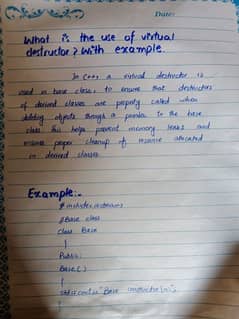 Date:
What is the use of virtual
destructor? With example.
In C++ a virtual destructor is
used in base class, to ensure that destructors
of derived classes are properly called when
deleting objects through a pointer to the base
class this helps prevent memory leaks and
ensures proper cleanup of resource allocated
in derived classes.
Example:-
# include<iostream>
//Base class
class Base
{
Public:
Base()
{
std::cout<<"Base constructor\n";